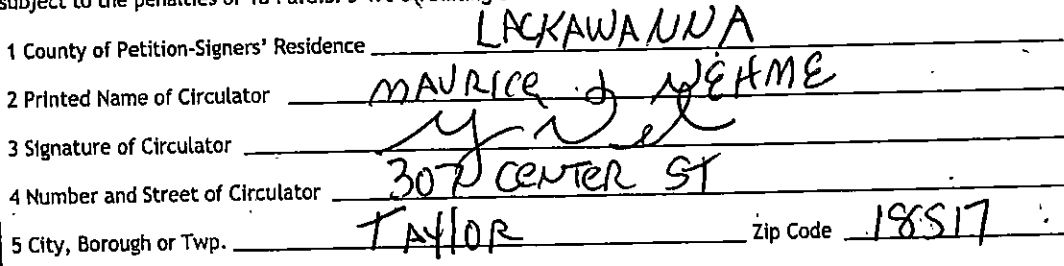 subject to the penalties of 18 Pa.C.S.
1 County of Petition-Signers' Residence LACKAWANNA
2 Printed Name of Circulator MAURICE J NEHME
3 Signature of Circulator
4 Number and Street of Circulator 307 CENTER ST
5 City, Borough or Twp. TAYlOR Zip Code 18517